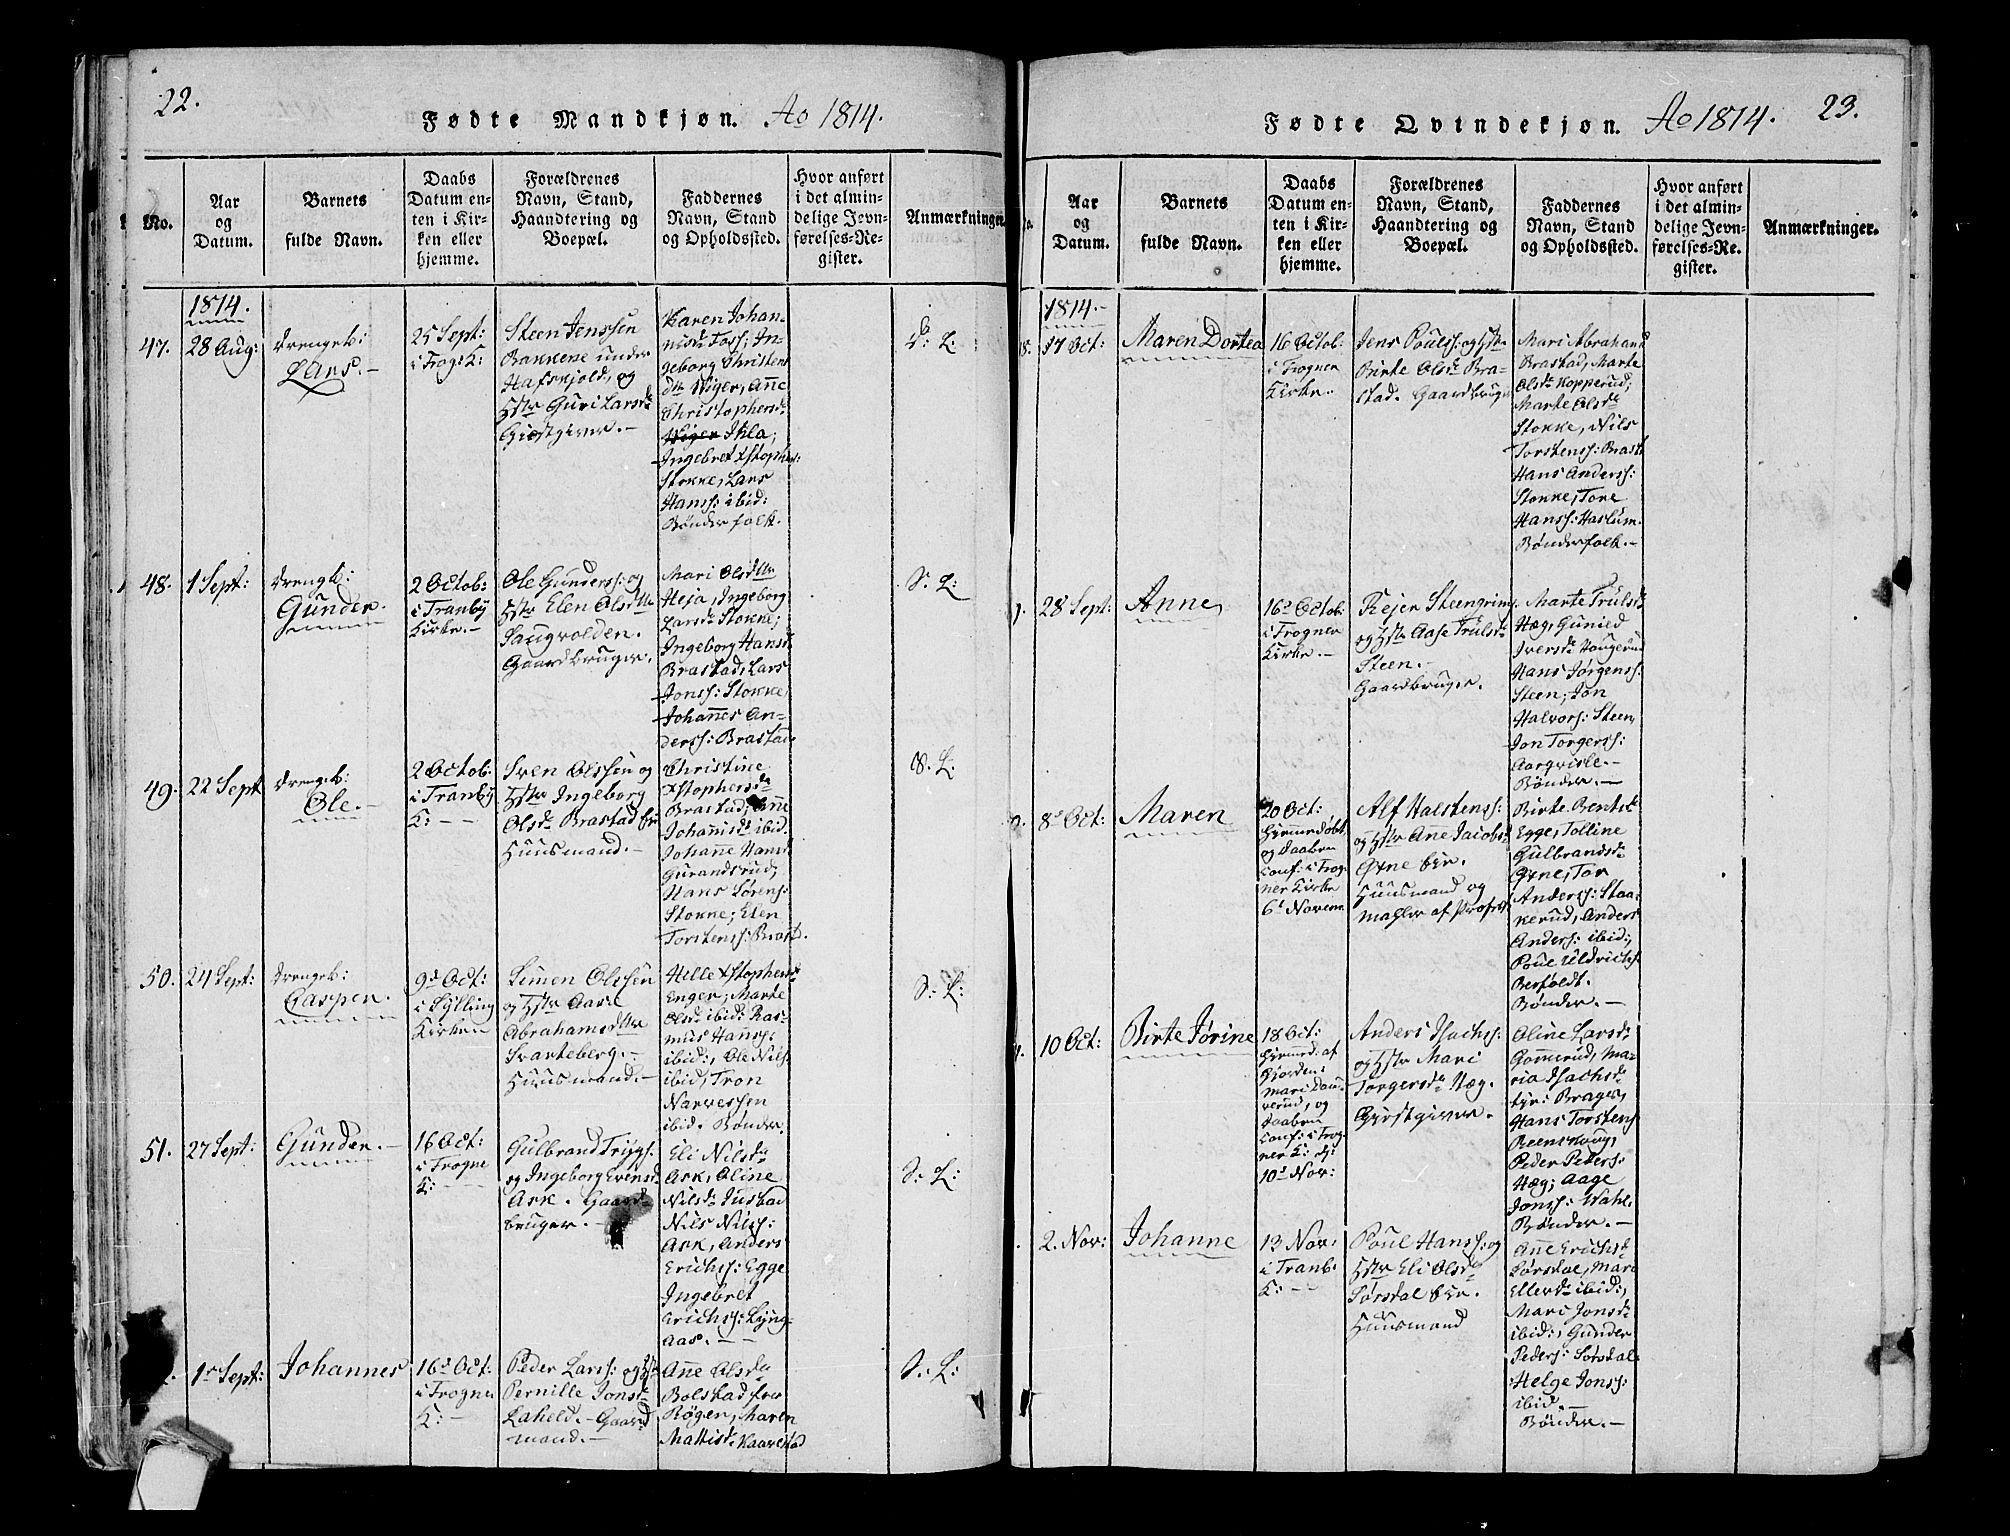 22.
Fødte Mandkjøn. Ao 1814.
No.
Aar
og
Datum.
Barnets
fulde Navn.
Daabs
Datum en-
ten i Kir-
ken eller
hjemme.
Forældrenes
Navn, Stand,
Haandtering og
Boepæl.
Faddernes
Navn, Stand
og Opholdssted.
Hvor anført
i det almin-
delige Jevn-
førelses-Re-
gister.
Anmærkninger
1814.
47.
28 Aug:
Drengeb:
Lars. -
25 Sept:
i Trog: K:
Steen Jenssen
Bakkene under
Hafskjold, og
Hstr Guri Larsdr
Giestgiver. -
Karen Johan-
nisdr Foss; In-
geborg Christens
dtr Wiger, Anne
Christophersdr
Wiger Ihla;
Ingebret Xstophers:
Stokke, Lars
Hanss: ibid:
Bønderfolk.
S: L:
48.
1 Sept:
Drengeb:
Gunder.
2 Octob:
i Tranby
Kirke. -
Ole Gunderss: og
Hstr Elen Olsdtr
Saugvolden.
Gaardbruger.
Mari Olsdtr
Heja, Ingeborg
Larsdr Stokke;
Ingeborg Hansdr
Brastad, Lars
Jonss: Stokke,
Johannes An-
derss: Brastad.
S: L:
49.
22 Sept
Drengeb:
Ole. -
2 Octob:
i Tranby
K: - -
Sven Olssen og
Hstr Ingeborg
Olsdr Brastad Eie
Huusmand. -
Christine
Xstophersdr
Brastad, Anne
Johannisdr ibid.
Johanne Hansdr
Gurandsrud;
Hans Sørens:
Stokke; Elen
Torstenss: Brast.
S: L:
50.
24 Sept:
Drengeb:
Casper.
9d Oct:
i Sylling
Kirken
Simen Olssen
og Hstr Aase
Abrahamsdtter
Svarteberg. -
Huusmand. -
Helle Xstophersdr
Enger; Marte
Olsdr ibid: Ras-
mus Hanss:
ibid:, Ole Nils:
ibid, Tron
Narvessen
ibid. Bønder.
S: L:
51.
27 Sept:
Gunder. -
16 Oct:
i Trogne
K: -
Gulbrand Trygs:
og Ingeborg Evensdr
Ask. Gaard-
bruger. -
Eli Nilsdr
Ask, Oline
Nilsdr Justad
Nils Nilss:
Ask, Anders
Erichss: Egge
Ingebret
Erichss: Lyng-
aas. -
S: L:
1r Sept:
Johannes
16d Oct:
i Trogne
K: -
Peder Larss: og Hstr
Pernille Jonsdr
Laheld. - Gaard
mand. -
Anne Olsdr
Bolstad for
Røgen, Maren
Mattisdr Kaarestad
S: L:
23.
Fødte Qvindekjøn. Ao 1814.
Aar
og
Datum.
Barnets
fulde Navn.
Daabs
Datum en-
ten i Kir-
ken eller
hjemme.
Forældrenes
Navn, Stand,
Haandtering og
Boepæl.
Faddernes
Navn, Stand
og Opholdssted.
Hvor anført
i det almin-
delige Jevn-
førelses-Re-
gister.
Anmærkninger.
1814. -
17 Oct:
Maren Dortea
16 Octob:
i Trogner
Kirke. -
Jens Pouls: og Hstr
Birte Olsdr Bra-
stad. Gaardbruger
Mari Abrahams
Brastad, Marte
Olsdr Kopperud;
Marte Olsdr
Stokke, Nils
Torstenss: Brast
Hans Anderss:
Stokke, Tore
Hanss: Haslum.
Bønderfolk. -
28 Sept:
Anne,
16d Octob:
i Trogner
Kirke. -
Rejer Steengrims
og Hstr Aase Trulsdr
Steen. -
Gaardbruger.
Marte Trulsdr
Hæg, Gunild
Iversdr Haugerud
Hans Jørgenss:
Steen; Jon
Halvors: Steen,
Jon Torgerss:
Aarqvisle.
Bønder. -
8d Oct:
Maren
20 Oct:
Hjemmedøbt
og Daaben
Conf: i Trog-
ner Kirke
6d Novem
Alf Halstens:
og Hstr Ane Jacobsdr
Øxne Eie.
Huusmand og
Mahler af Profes:
Birte Bentsdr
Egge, Tolline
Gulbrandsdr
Øxne, Tor
Anderss: Staa-
kerud, Anders
Anderss: ibid:,
Poul Uldrichs:
Berfoldt.
Bønder. -
10 Oct:
Birte Jørine
18 Oct:
Hjemmed: af
Gjordem:
Mari Dam-
rerud, og
Daaben
Conf: i Trog-
ner K: d:
10d Nov:
Anders Isachs:
og Hstr Mari
Torgersdr Hæg.
Giestgiver.
Oline Larsdr
Gommerud, Ma-
ria Isachsdr
tyr: Brager,
Hans Torstens
Reenskoug,
Peder Peders:
Hæg; Aage
Jonss: Wahl.
Bønder. -
2. Nov:
Johanne
13 Nov:
i Tranb:
K: - -
Poul Hanss: og
Hstr Eli Olsdr
Sørsdal Eie.
Huusmand
Anne Erichsdr
Sørsdal, Mari
Ellersdr ibid:,
Mari Jonsdr
ibid:, Gunder
Peders: Sørsdal
Helge Jonss:
ibid.
Bønder. -